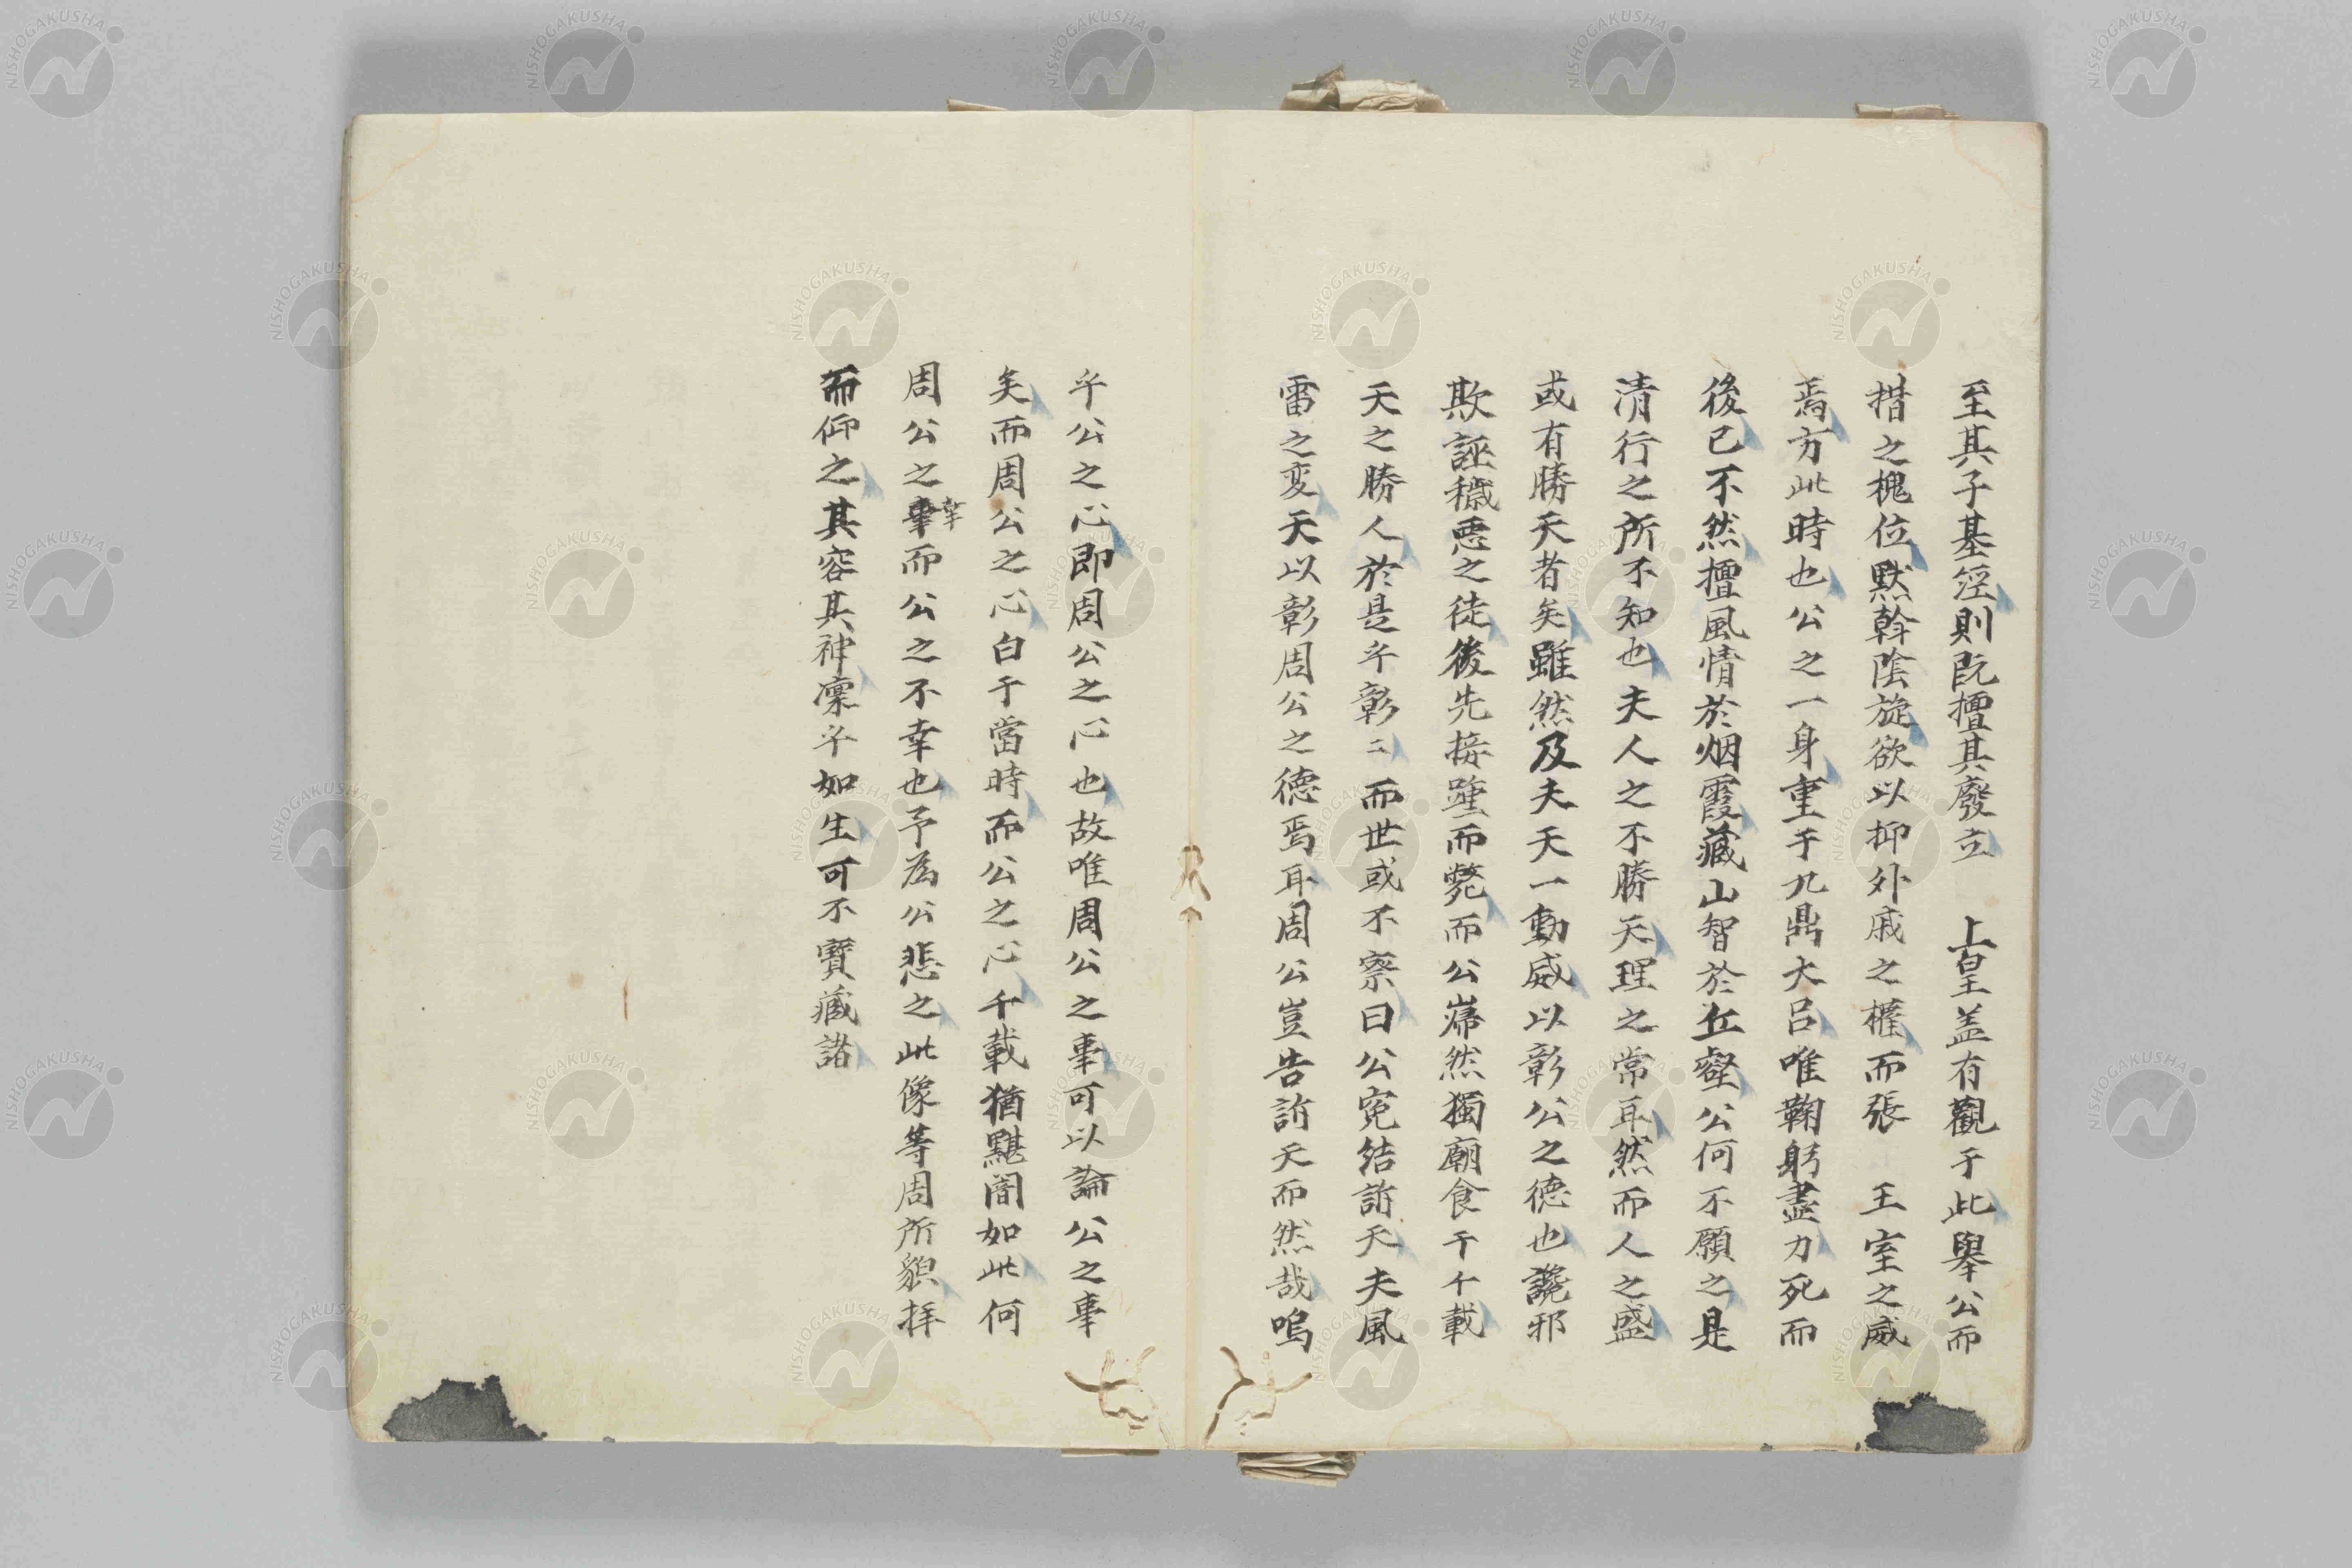 至其子基経則既擅其廢立　上皇盖有觀于此擧公而
措之槐位默斡陰旋欲以抑外戚之權而張　王室之威
焉方此時也公之一身重于九鼎大呂唯鞠躬盡力死而
後已不然擅風情於烟霞藏山智於丘壑公何不願之是
清行之所不知也夫人之不勝天理之常耳然而人之盛
或有勝天者矣雖然及夫天一動威以彰公之德也讒邪
欺誣穢悪之徒後先接踵而斃而公巋然獨廟食于千載
天之勝人於是乎彰二而世或不察曰公寃結訴天夫風
雷之変天以彰周公之德焉耳周公豈告訴天而然哉嗚
乎公之心即周公之心也故唯周公之事可以論公之事
矣而周公之心白于當時而公之心千載猶黮闇如此何
周公之幸而公之不幸也予為公悲之此像等周所貌拝
而仰之其容其神凜乎如生可不寶藏諸
幸
NISHOGAKUSHA